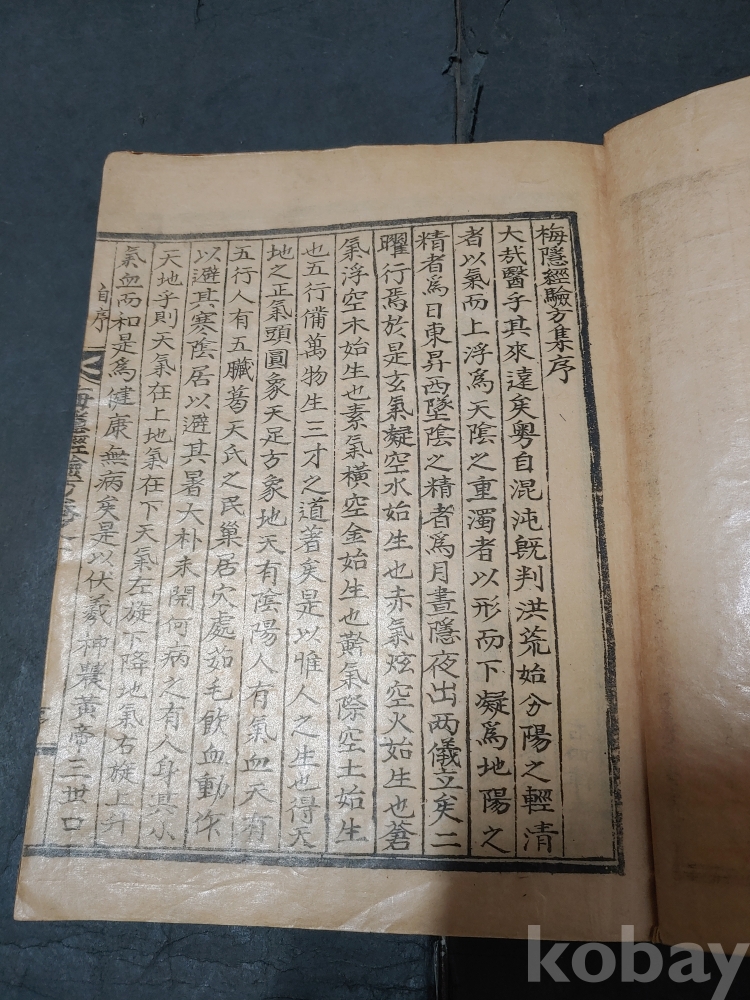 梅隱經驗方集序
大哉醫乎其來遠矣粤自混沌旣判洪荒始分陽之輕清
者以氣而上浮爲天陰之重濁者以形而下凝爲地陽之
精者爲日東昇西墜陰之精者爲月晝隱夜出两儀立矣二
曜行焉於是玄氣凝空水始生也赤氣炫空火始生也蒼
氣浮空木始生也素氣橫空金始生也黅氣際空土始生
也五行備萬物生三才之道著矣是以惟人之生也得天
地之正氣頭圓象天足方象地天有陰陽人有氣血天有
五行人有五臟葛天氏之民巢居穴處茹毛飲血動作
以避其寒陰居以避其暑大朴未開何病之有人身其小
天地乎則天氣在上地氣在下天氣左旋下降地氣右旋上升
氣血而和是爲健康無病矣是以伏羲神農黃帝三世
自序
梅隱經驗方
kobay